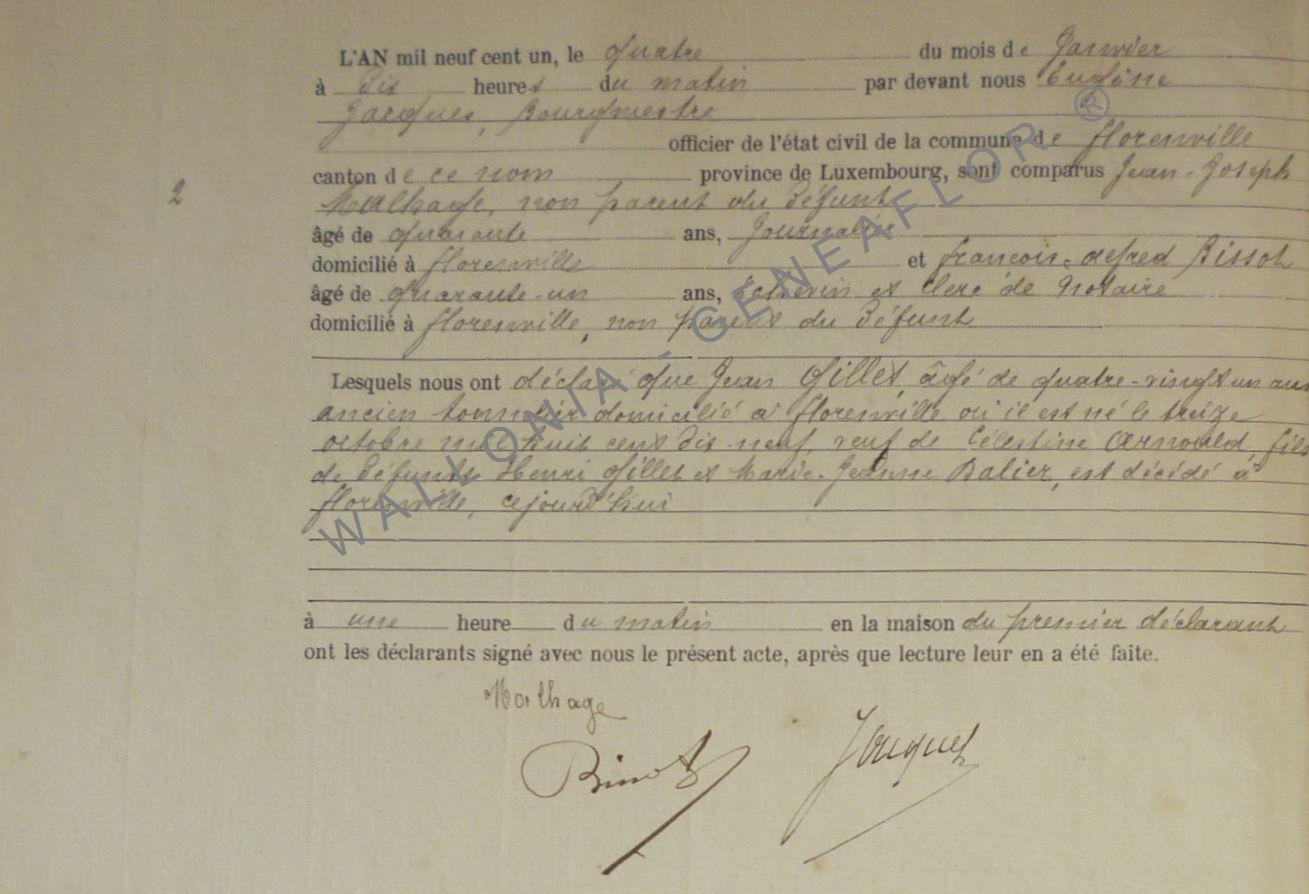 L'AN mil neuf cent un, le quatre du mois de Janvier
à dix heures du matin par devant nous Eugène
Jacques, Bourgmestre
officier de l'état civil de la commune de florenville
canton de ce nom province de Luxembourg, sont comparus Jean-Joseph
2
Malhage, non parent du défunt
âgé de quarante ans, Journalier
domicilié à florenville et françois-alfred Bissot
âgé de quarante-un ans, Echevin et clerc de Notaire
domicilié à florenville, non parent du défunt
Lesquels nous ont déclaré que Jean Gillet, âgé de quatre-vingt un ans
ancien tonnelier domicilié à florenville où il est né le treize
octobre mil huit cent dix-neuf, veuf de Célestine Arnould, fils
de défunts Henri Gillet et Marie-Jeanne Balier, est décédé à
florenville, cejourd'hui
à une heure du matin en la maison du premier déclarant
ont les déclarants signé avec nous le présent acte, après que lecture leur en a été faite.
Malhage
WALLONIA - GENEAFLOR ®